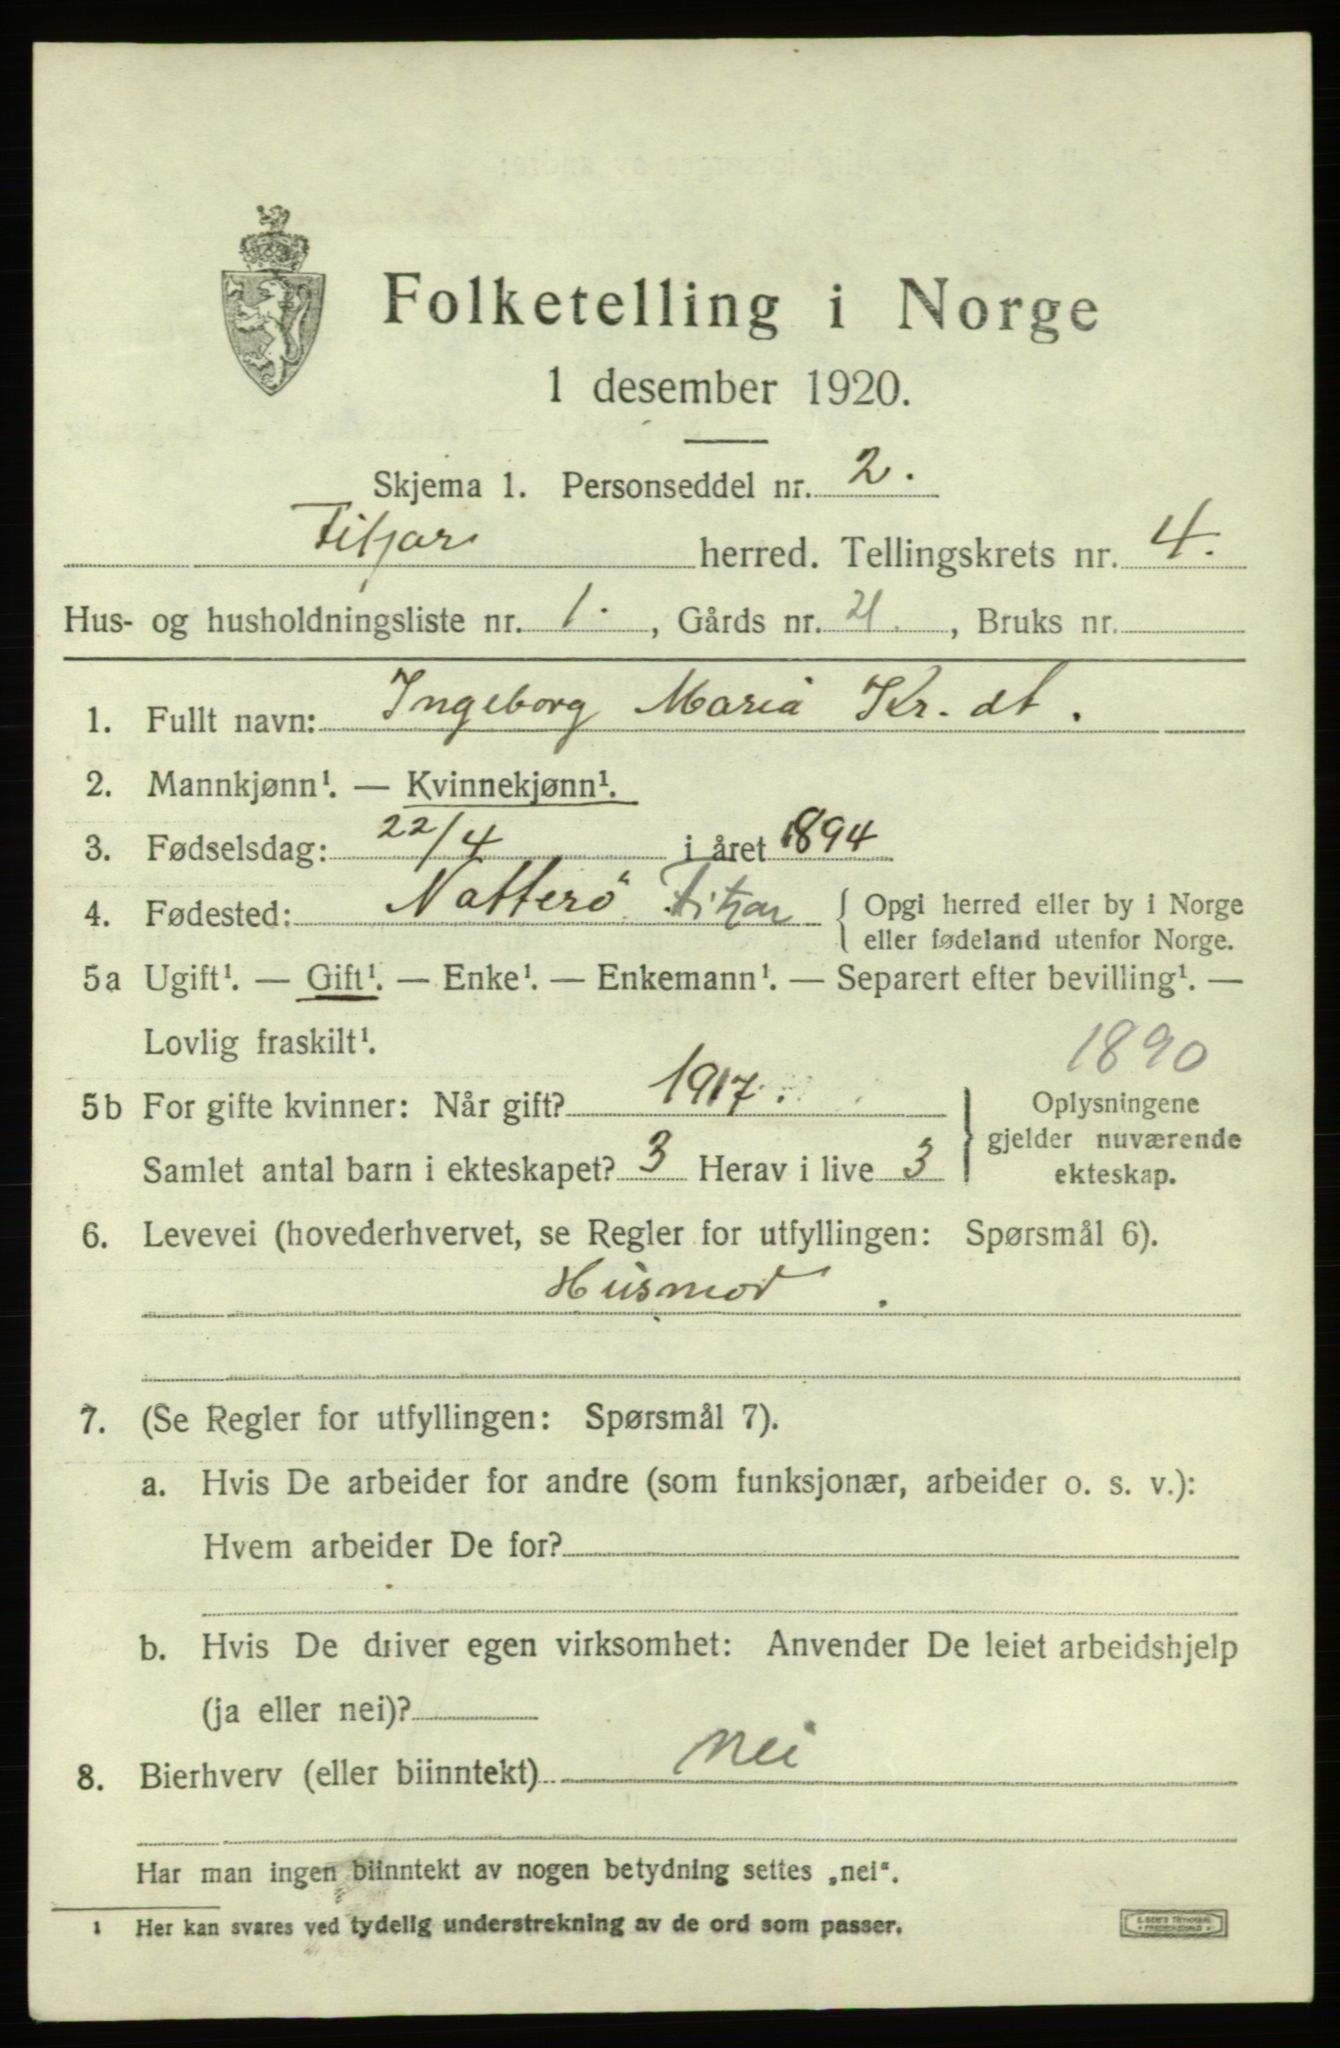 Folketelling i Norge
1 desember 1920.
Skjema 1. Personseddel nr. 2.
Fitjar herred. Tellingskrets nr. 4.
Hus- og husholdningsliste nr. 1. , Gårds nr. 21. , Bruks nr.
1. Fullt navn: Ingeborg Maria Kr. dt.
2. Mannkjønn¹. — Kvinnekjønn¹.
3. Fødselsdag: 22/4 i året 1894
4. Fødested: Natterö Fitjar { Opgi herred eller by i Norge
eller fødeland utenfor Norge.
5a Ugift¹. — Gift¹. — Enke¹. — Enkemann¹. — Separert efter bevilling¹. —
Lovlig fraskilt¹.
1890
5b For gifte kvinner: Når gift? 1917. } Oplysningene
gjelder nuværende
Samlet antal barn i ekteskapet? 3 Herav i live 3 ekteskap.
6. Levevei (hovederhvervet, se Regler for utfyllingen: Spørsmål 6).
Husmor
7. (Se Regler for utfyllingen: Spørsmål 7).
a. Hvis De arbeider for andre (som funksjonær, arbeider o. s. v.):
Hvem arbeider De for?
b. Hvis De driver egen virksomhet: Anvender De leiet arbeidshjelp
(ja eller nei)?
8. Bierhverv (eller biinntekt) nei
Har man ingen biinntekt av nogen betydning settes „nei“.
¹ Her kan svares ved tydelig understrekning av de ord som passer.